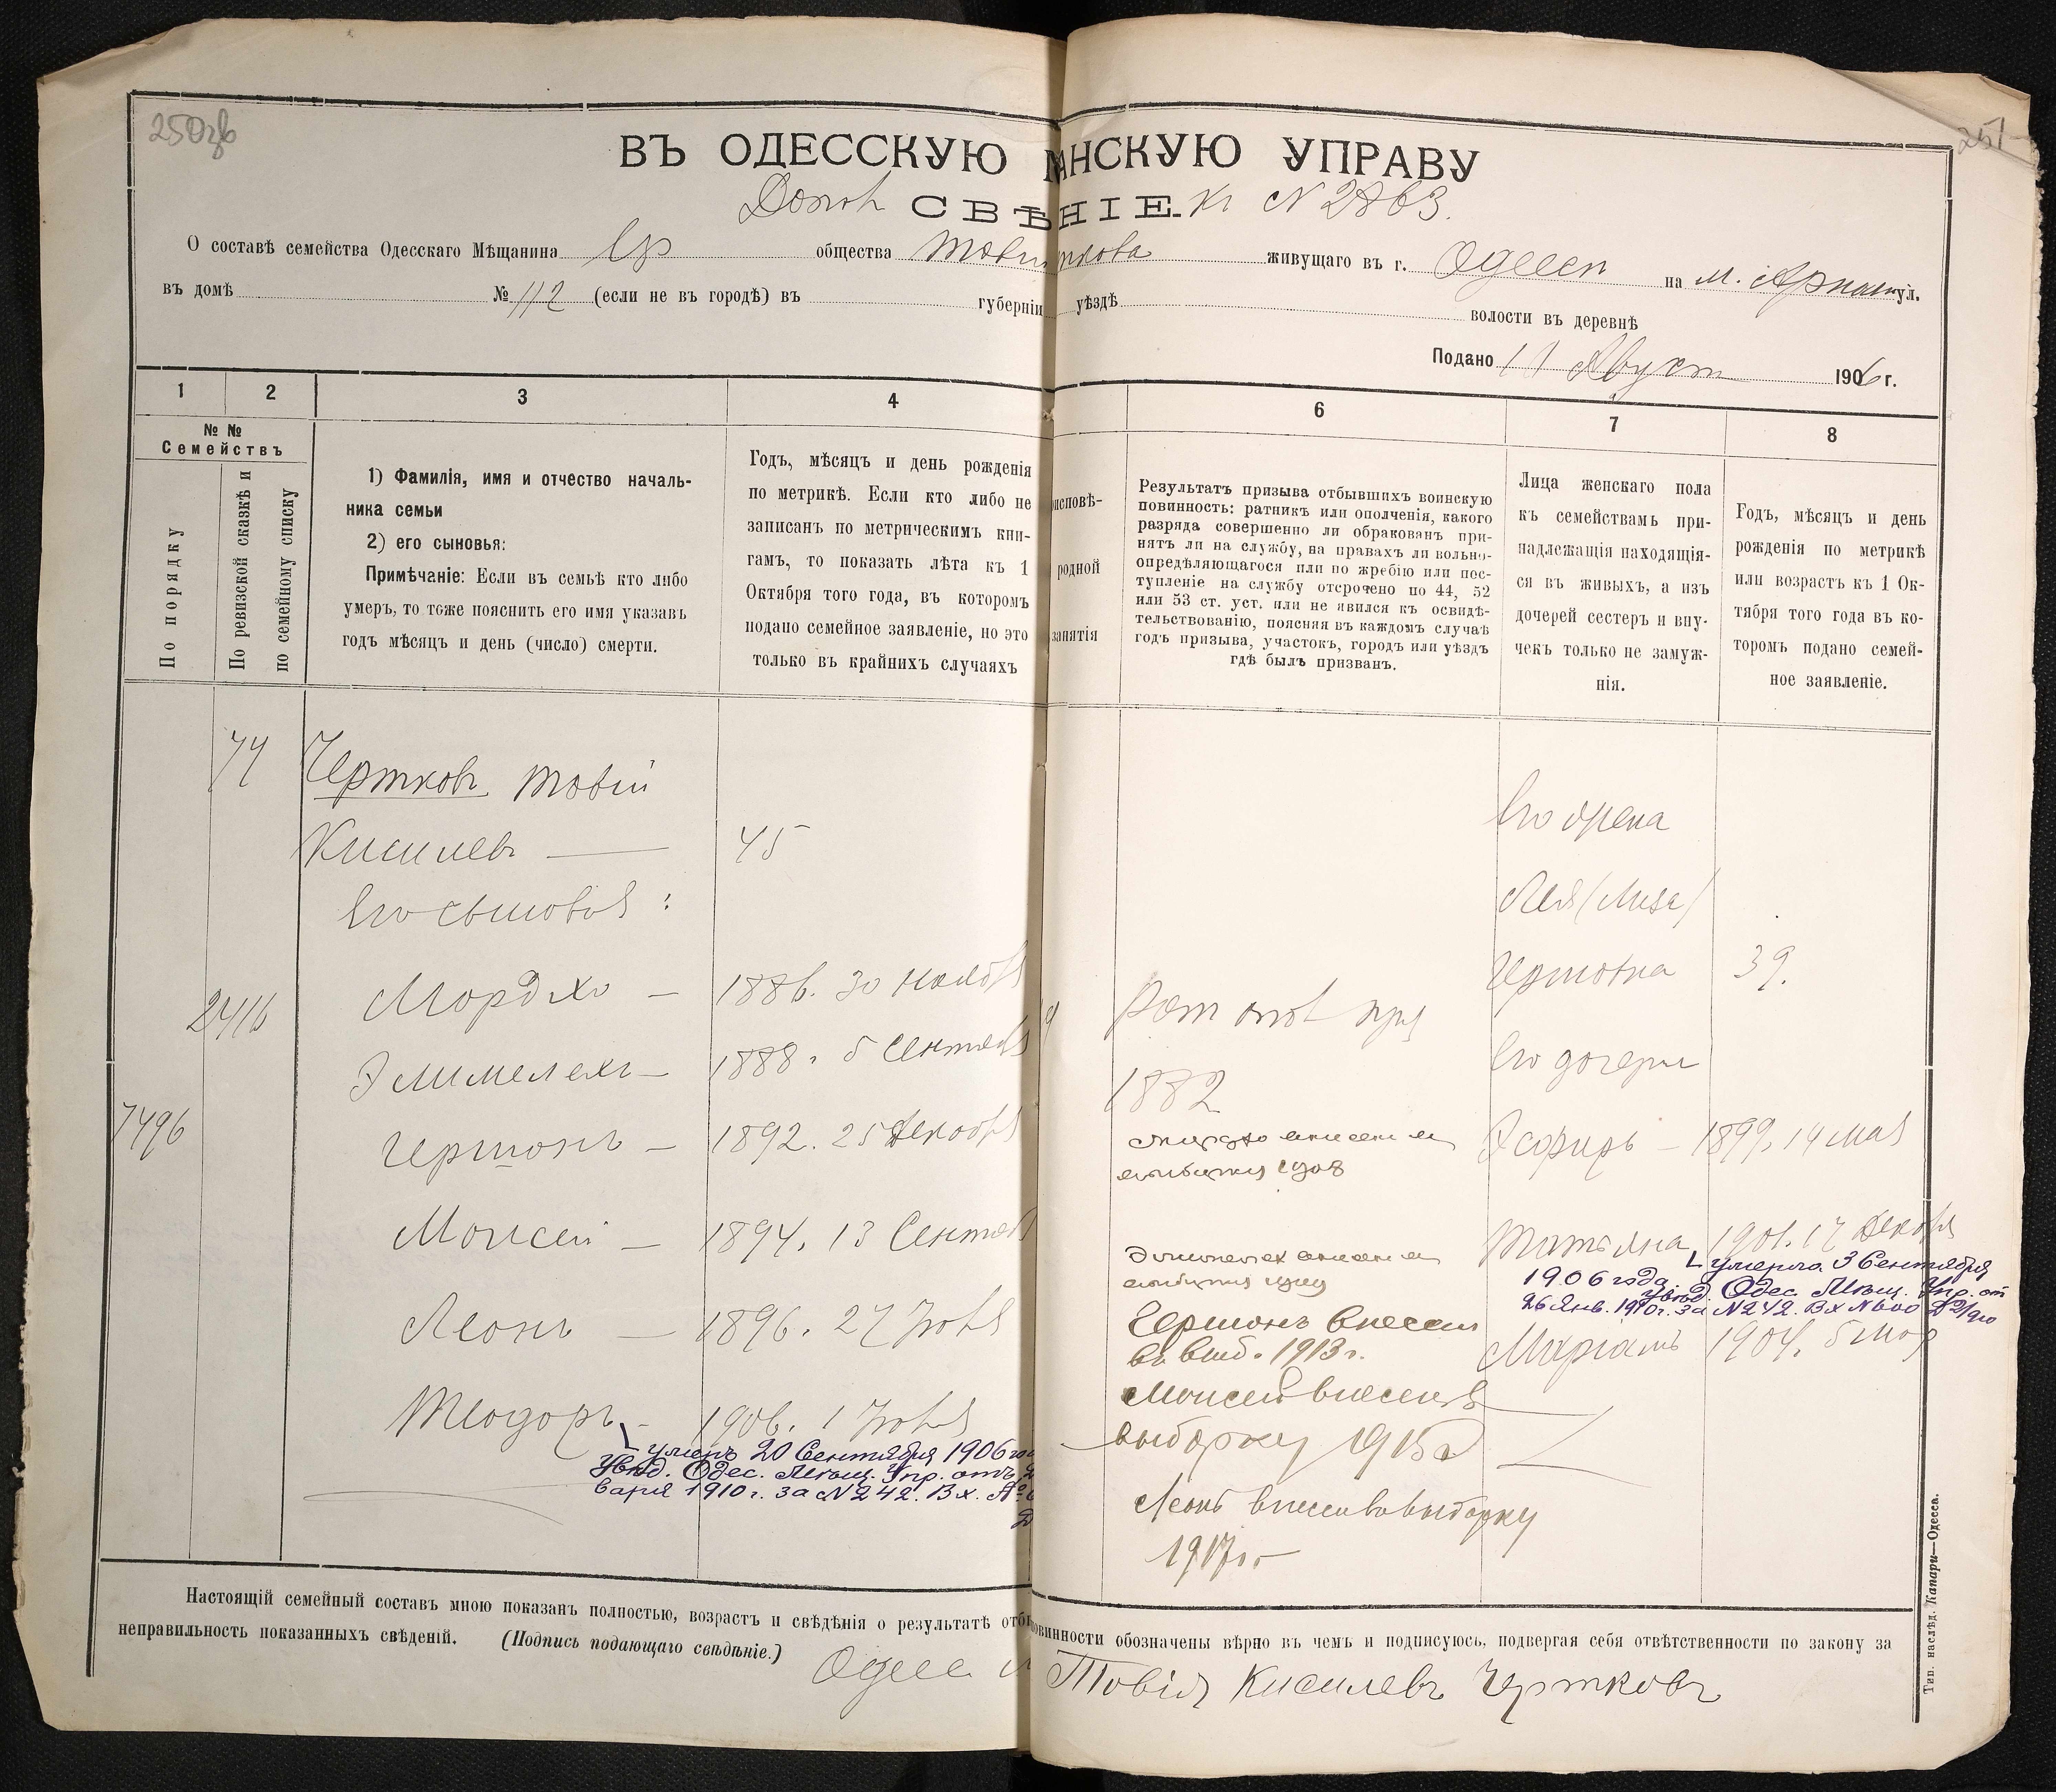 250об
251
ВЪ ОДЕССКУЮ АНСКУЮ УПРАВУ
СВѢНІЕ къ N 2863.
О составѣ семейства Одесскаго Мѣщанина Евр общества живущаго въ г. Одессѣ на М. Арнаут ул.
въ домѣ № 112 (если не въ городѣ) въ губерніи уѣздѣ волости въ деревнѣ
Подано 11 Август 1906 г.
1 2 3 4 6 7 8
№ №
Семействъ
По порядку
По ревизской сказкѣ и
по семейному списку
1) Фамилія, имя и отчество началь-
ника семьи
2) его сыновья:
Примѣчаніе: Если въ семьѣ кто либо
умеръ, то тоже пояснить его имя указавъ
годъ мѣсяцъ и день (число) смерти.
Годъ, мѣсяцъ и день рожденія
по метрикѣ. Если кто либо не
записанъ по метрическимъ кни-
гамъ, то показать лѣта къ 1
Октября того года, въ которомъ
подано семейное заявленіе, но это
только въ крайнихъ случаяхъ
исповѣ-
родной
занятія
Результатъ призыва отбывшихъ воинскую
повинность: ратникъ или ополченія, какого
разряда совершенно ли обракованъ при-
нятъ ли на службу, на правахъ ли вольно-
опредѣляющагося или по жребію или пос-
тупленіе на службу отсрочено по 44, 52
или 53 ст. уст. или не явился къ освидѣ-
тельствованію, поясняя въ каждомъ случаѣ
годъ призыва, участокъ, городъ или уѣздъ
гдѣ былъ призванъ.
Лица женскаго пола
къ семействамъ при-
надлежащія находящія-
ся въ живыхъ, а изъ
дочерей сестеръ и вну-
чекъ только не замуж-
нія.
Годъ, мѣсяцъ и день
рожденія по метрикѣ
или возрастъ къ 1 Ок-
тября того года въ ко-
торомъ подано семей-
ное заявленіе.
74 Чертковъ Товій
Кисилевъ — 45
Его сыновья:
2416 Мордхо — 1886. 30 Ноября
Элимелехъ — 1888. 5 Сентяб
7496 Гершонъ — 1892. 25 Декабря
Моисей — 1894. 13 Сентяб
Леонъ — 1896. 27 Іюля
Теодоръ — 1906. 1 Іюля
умеръ 20 Сентября 1906 го
Увѣд. Одес. Мѣщ. Упр. отъ 2
варя 1910 г. за N 242. Вх. №
Рат опол
1882
1908
Гершонъ внесенъ
въ выб. 1913 г.
Моисей внесенъ в
выборку 1915 г
Леонъ внесен в выборку
1917 г
Его жена
Лея (Лиза)
39.
Его дочери
Эсфирь — 1899. 14 мая
Татьяна 1901. 17 Декабря
умерла 3 Сентября
1906 года. Увѣд. Одес. Мѣщ. Упр. от
26 Янв. 1910 г. за N 242. Вх N 600
Маріамъ 1904. 5
Настоящій семейный составъ мною показанъ полностью, возрастъ и свѣдѣнія о результатѣ отб овинности обозначены вѣрно въ чемъ и подписуюсь, подвергая себя отвѣтственности по закону за
неправильность показанныхъ свѣденій. (Подпись подающаго свѣдѣніе.)
Одесс Товія Кисилевъ Чертковъ
Тип. наслѣд. Капари—Одесса.